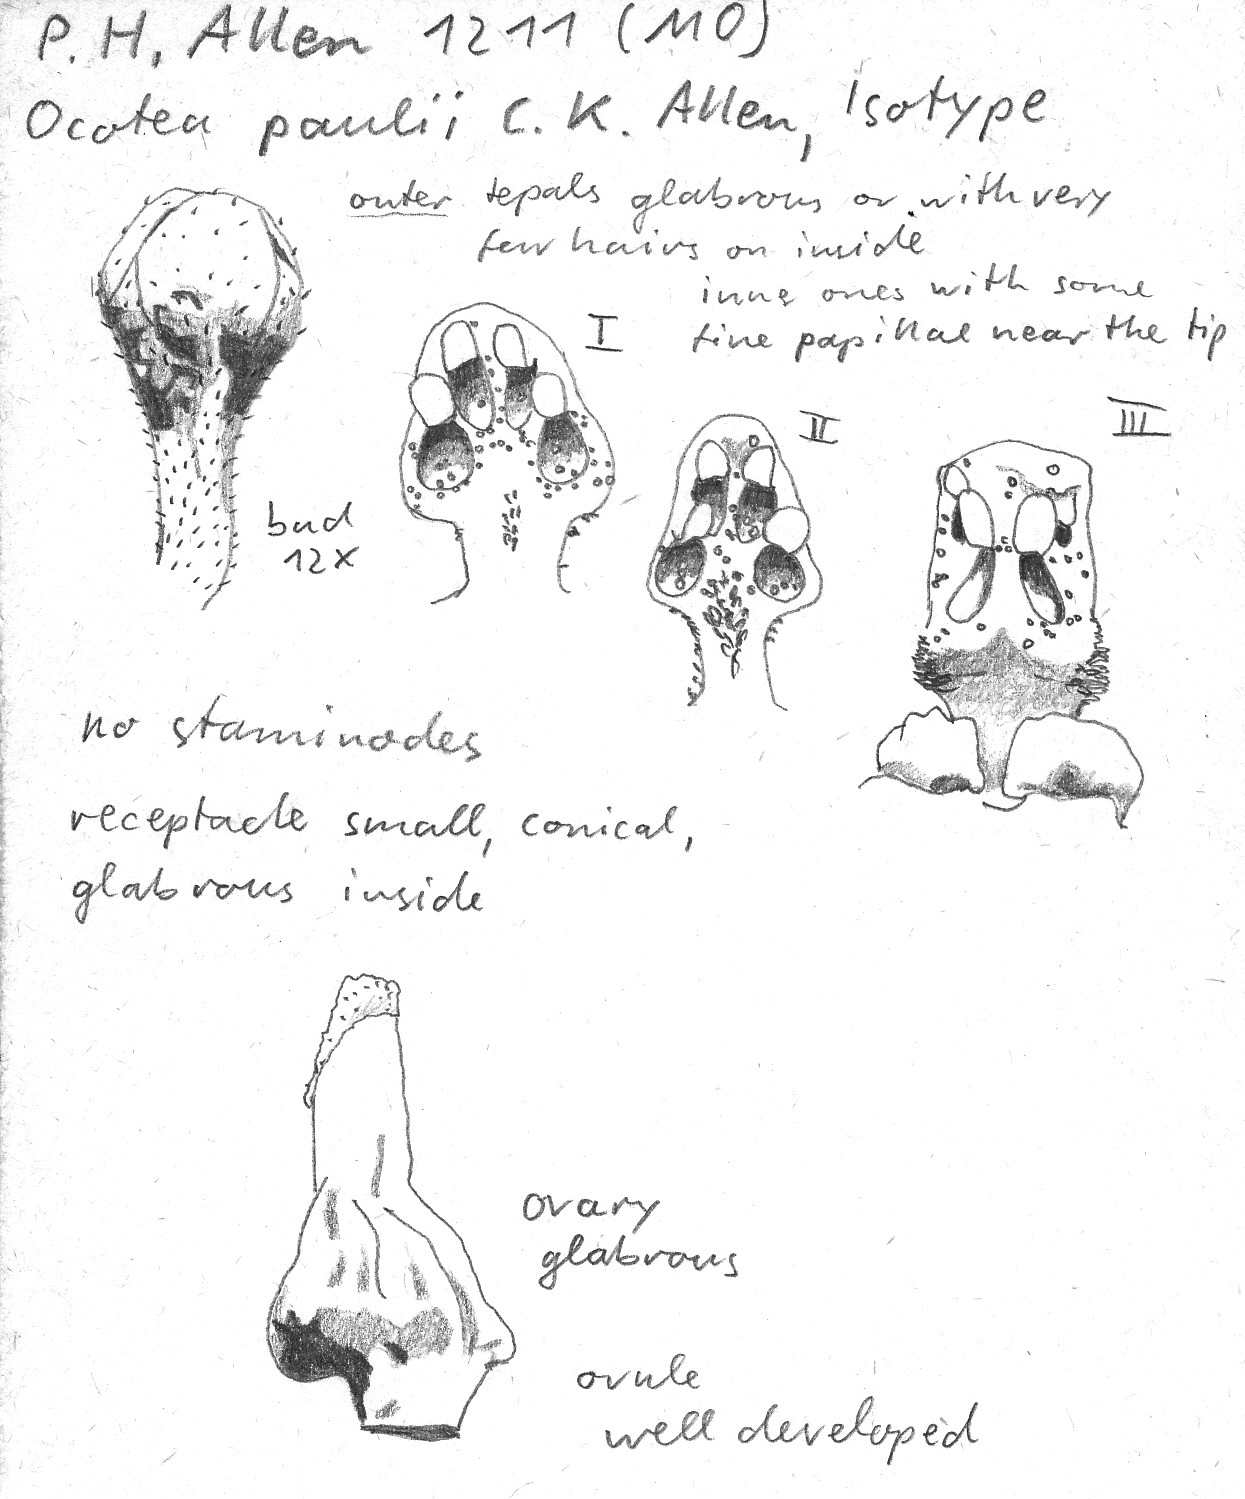 P. H. Allen 1211 (MO)
Ocotea paulii C. K. Allen, Isotype
outer tepals glabrous or with very
few hairs on inside
inner ones with some
fine papillae near the tip
I
II
III
bud
12x
no staminodes
receptacle small, conical,
glabrous inside
ovary
glabrous
ovule
well developed